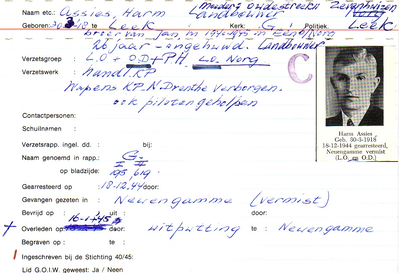 Naam etc.: Assies, Harm Landbouwer Zevenhuizen
Geboren: 30-3-18 te: Leek Kerk: G. Politiek: Leek
broer van Jan, in 1940-1945 in Een of Norg
26 jaar - ongehuwd. Landbouwer
Verzetsgroep : L.O + O.D + P.H. L.O. Norg
Verzetswerk : Handl. KP
Wapens KPS N. Drenthe verborgen.
ook piloten geholpen
C
Contactpersonen:
Schuilnamen :
Verzetsrapp. ingel. dd. : bij:
Naam genoemd in rapp.: G-
I II
op bladzijde: 195, 619,
Gearresteerd op : 18-12-44 door:
Gevangen gezeten in : Neuengamme (vermist)
Bevrijd op : uit : door:
16-1-45
+ Overleden op : door: uitputting te : Neuengamme
Begraven op : te :
Ingeschreven bij de Stichting 40/45:
Lid G.O.I.W. geweest: Ja / Neen
Harm Assies
Geb. 30-3-1918
18-12-1944 gearresteerd,
Neuengamme vermist
(L.O. en O.D.)